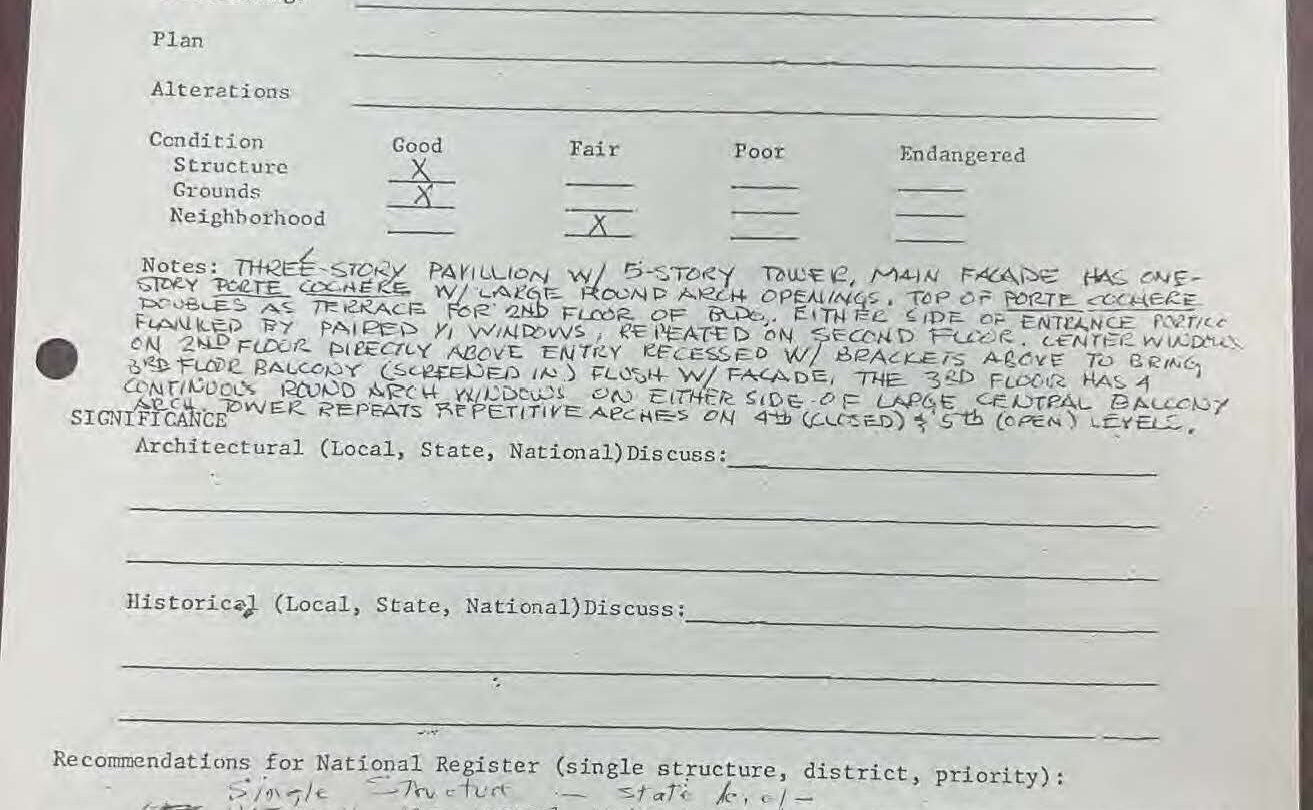 Plan
Alterations
Condition Good Fair Poor Endangered
Structure X
Grounds X
Neighborhood X
Notes: THREE-STORY PAVILLION W/ 5-STORY TOWER, MAIN FACADE HAS ONE-
STORY PORTE COCHERE W/ LARGE ROUND ARCH OPENINGS. TOP OF PORTE COCHERE
DOUBLES AS TERRACE FOR 2ND FLOOR OF BLDG. EITHER SIDE OF ENTRANCE PORTICO
FLANKED BY PAIRED 1/1 WINDOWS, REPEATED ON SECOND FLOOR. CENTER WINDOWS
ON 2ND FLOOR DIRECTLY ABOVE ENTRY RECESSED W/ BRACKETS ABOVE TO BRING
3RD FLOOR BALCONY (SCREENED IN) FLUSH W/ FACADE, THE 3RD FLOOR HAS 4
CONTINUOUS ROUND ARCH WINDOWS ON EITHER SIDE OF LARGE CENTRAL BALCONY
ARCH TOWER REPEATS REPETITIVE ARCHES ON 4th (CLOSED) & 5th (OPEN) LEVELS.
SIGNIFICANCE
Architectural (Local, State, National)Discuss:
Historical (Local, State, National)Discuss:
Recommendations for National Register (single structure, district, priority):
Single Structure — state level —